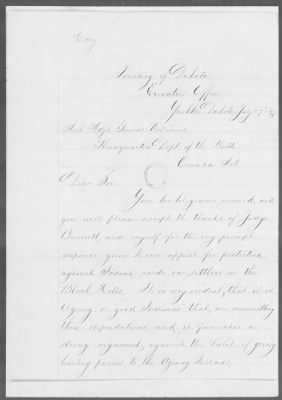 Copy
Territory of Dakota
Executive Office
Yankton Dakota July 27" 1877
Asst Adjt General Williams
Headquarters Dept of the Platte
Omaha Neb
Dear Sir
Your telegram received, and
you will please accept the thanks of Judge
Bennett, and myself for the very prompt
response given to our appeal for protection
against Indian raids on settlers in the
Black Hills. It is very evident, that it is
Agency or good Indians that are committing
these depredations, and it furnishes a
strong argument, against the habit of giving
hunting passes to the Agency Indians